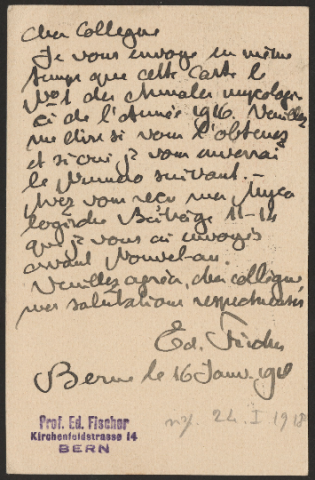 cher Collègue
Je vous envoye en même
temps que cette carte le
No 1 des Annales mycologi-
ci de l'Année 1916. Veuillez
me dire si vous l'obtenez
et si oui je vous enverrai
le Numéro suivant. –
Avez vous reçu mes Myco
logische Beiträge 11-14
que je vous ai envoyés
avant Nouvel-an.
Veuillez agréer, cher collègue
mes salutations respectueuses
Ed. Fischer
Berne le 16 Janv. 1918
Prof. Ed. Fischer
Kirchenfeldstrasse 14
BERN
24. I 1918